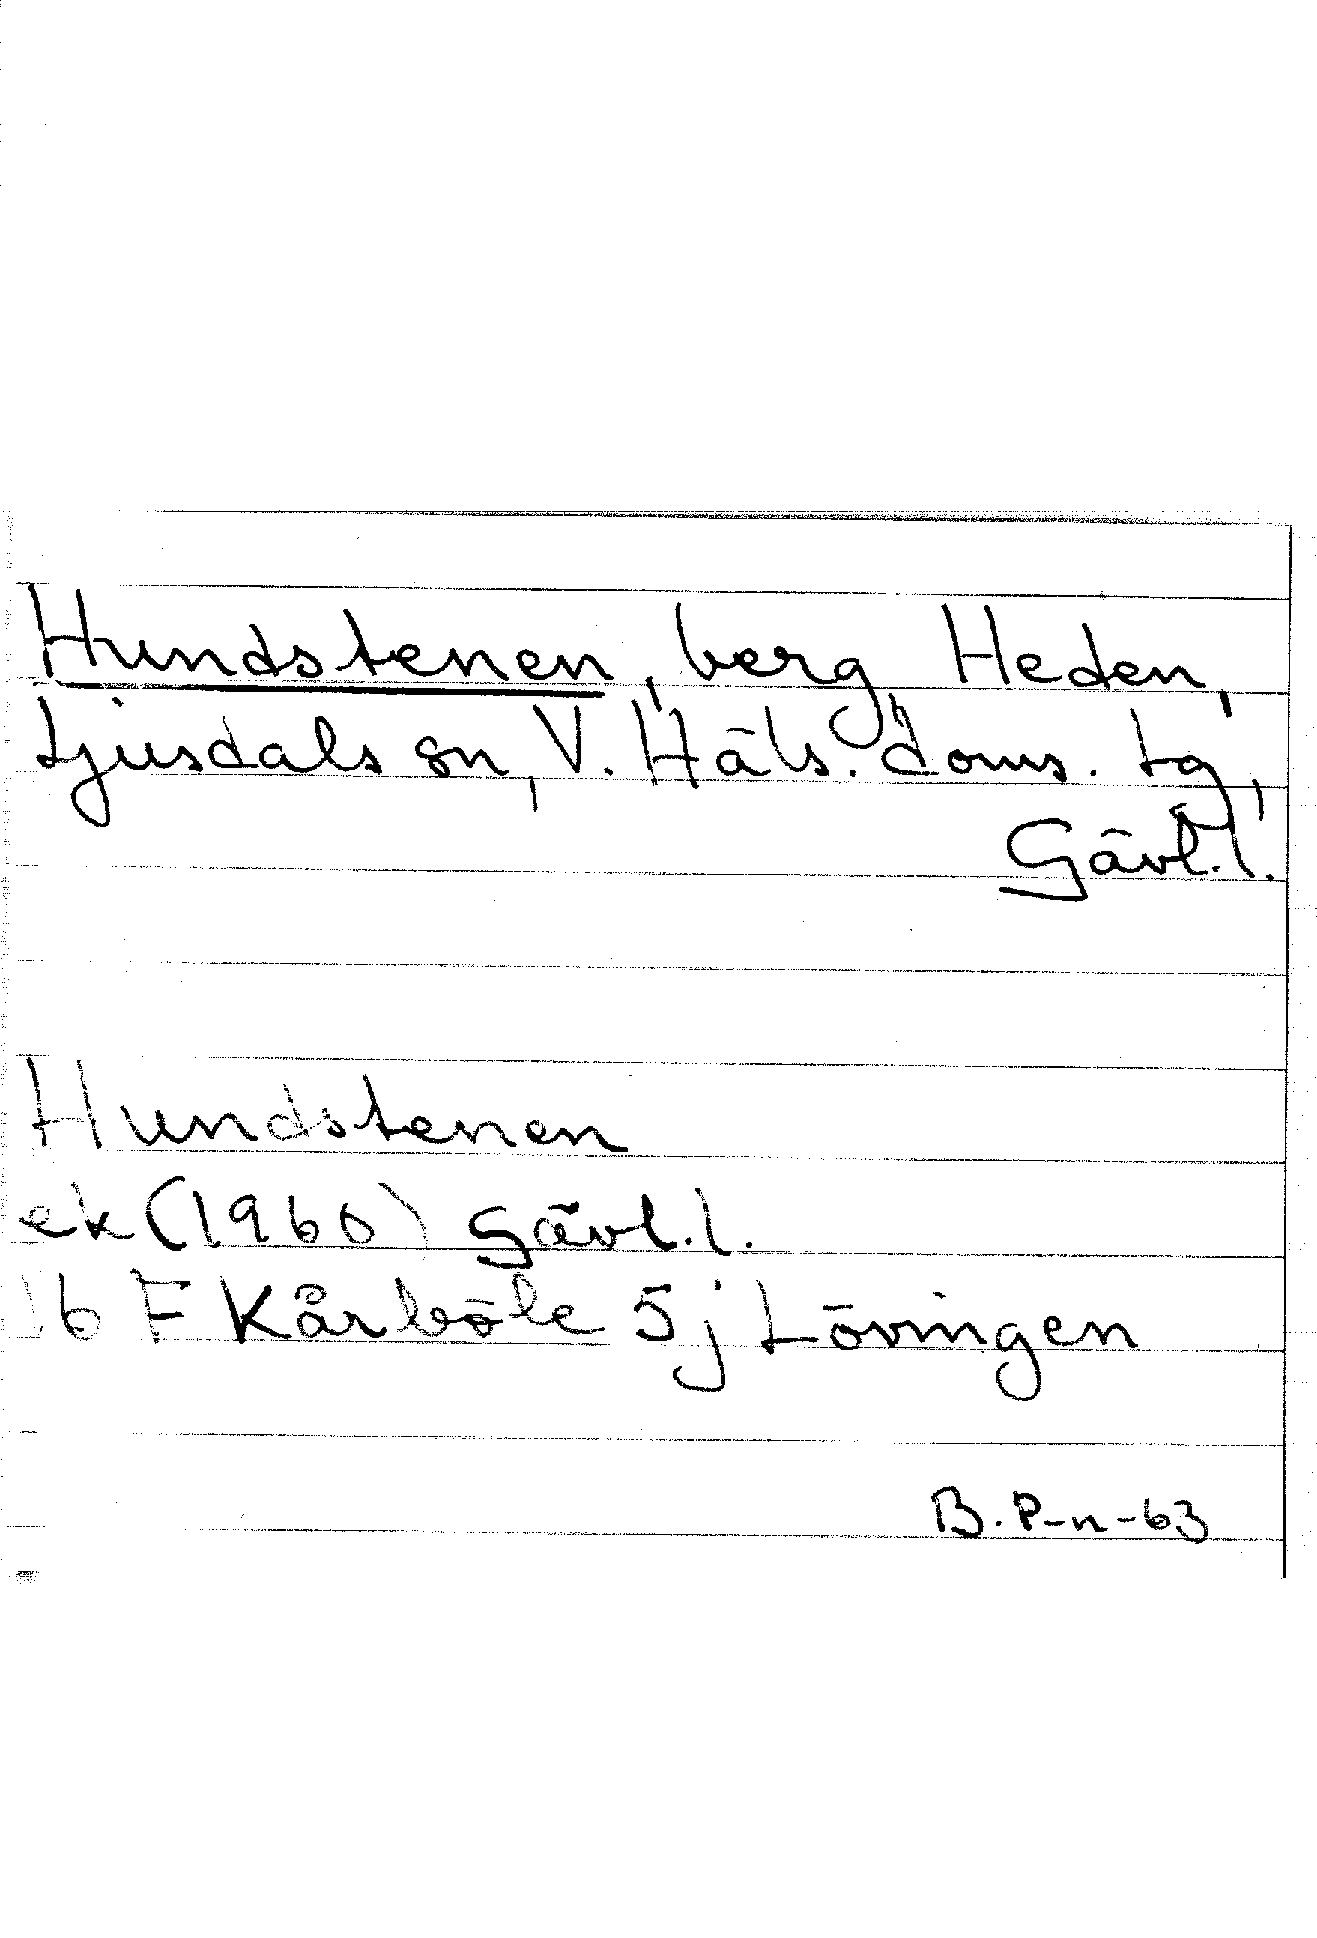 Hundstenen, berg, Heden,
Ljusdals sn, V. Häls. doms. tg,
Gävl. l.
Hundstenen
ek (1960) Gävl. l.
16 F Kårböle 5j Lövingen
B. P-n-63